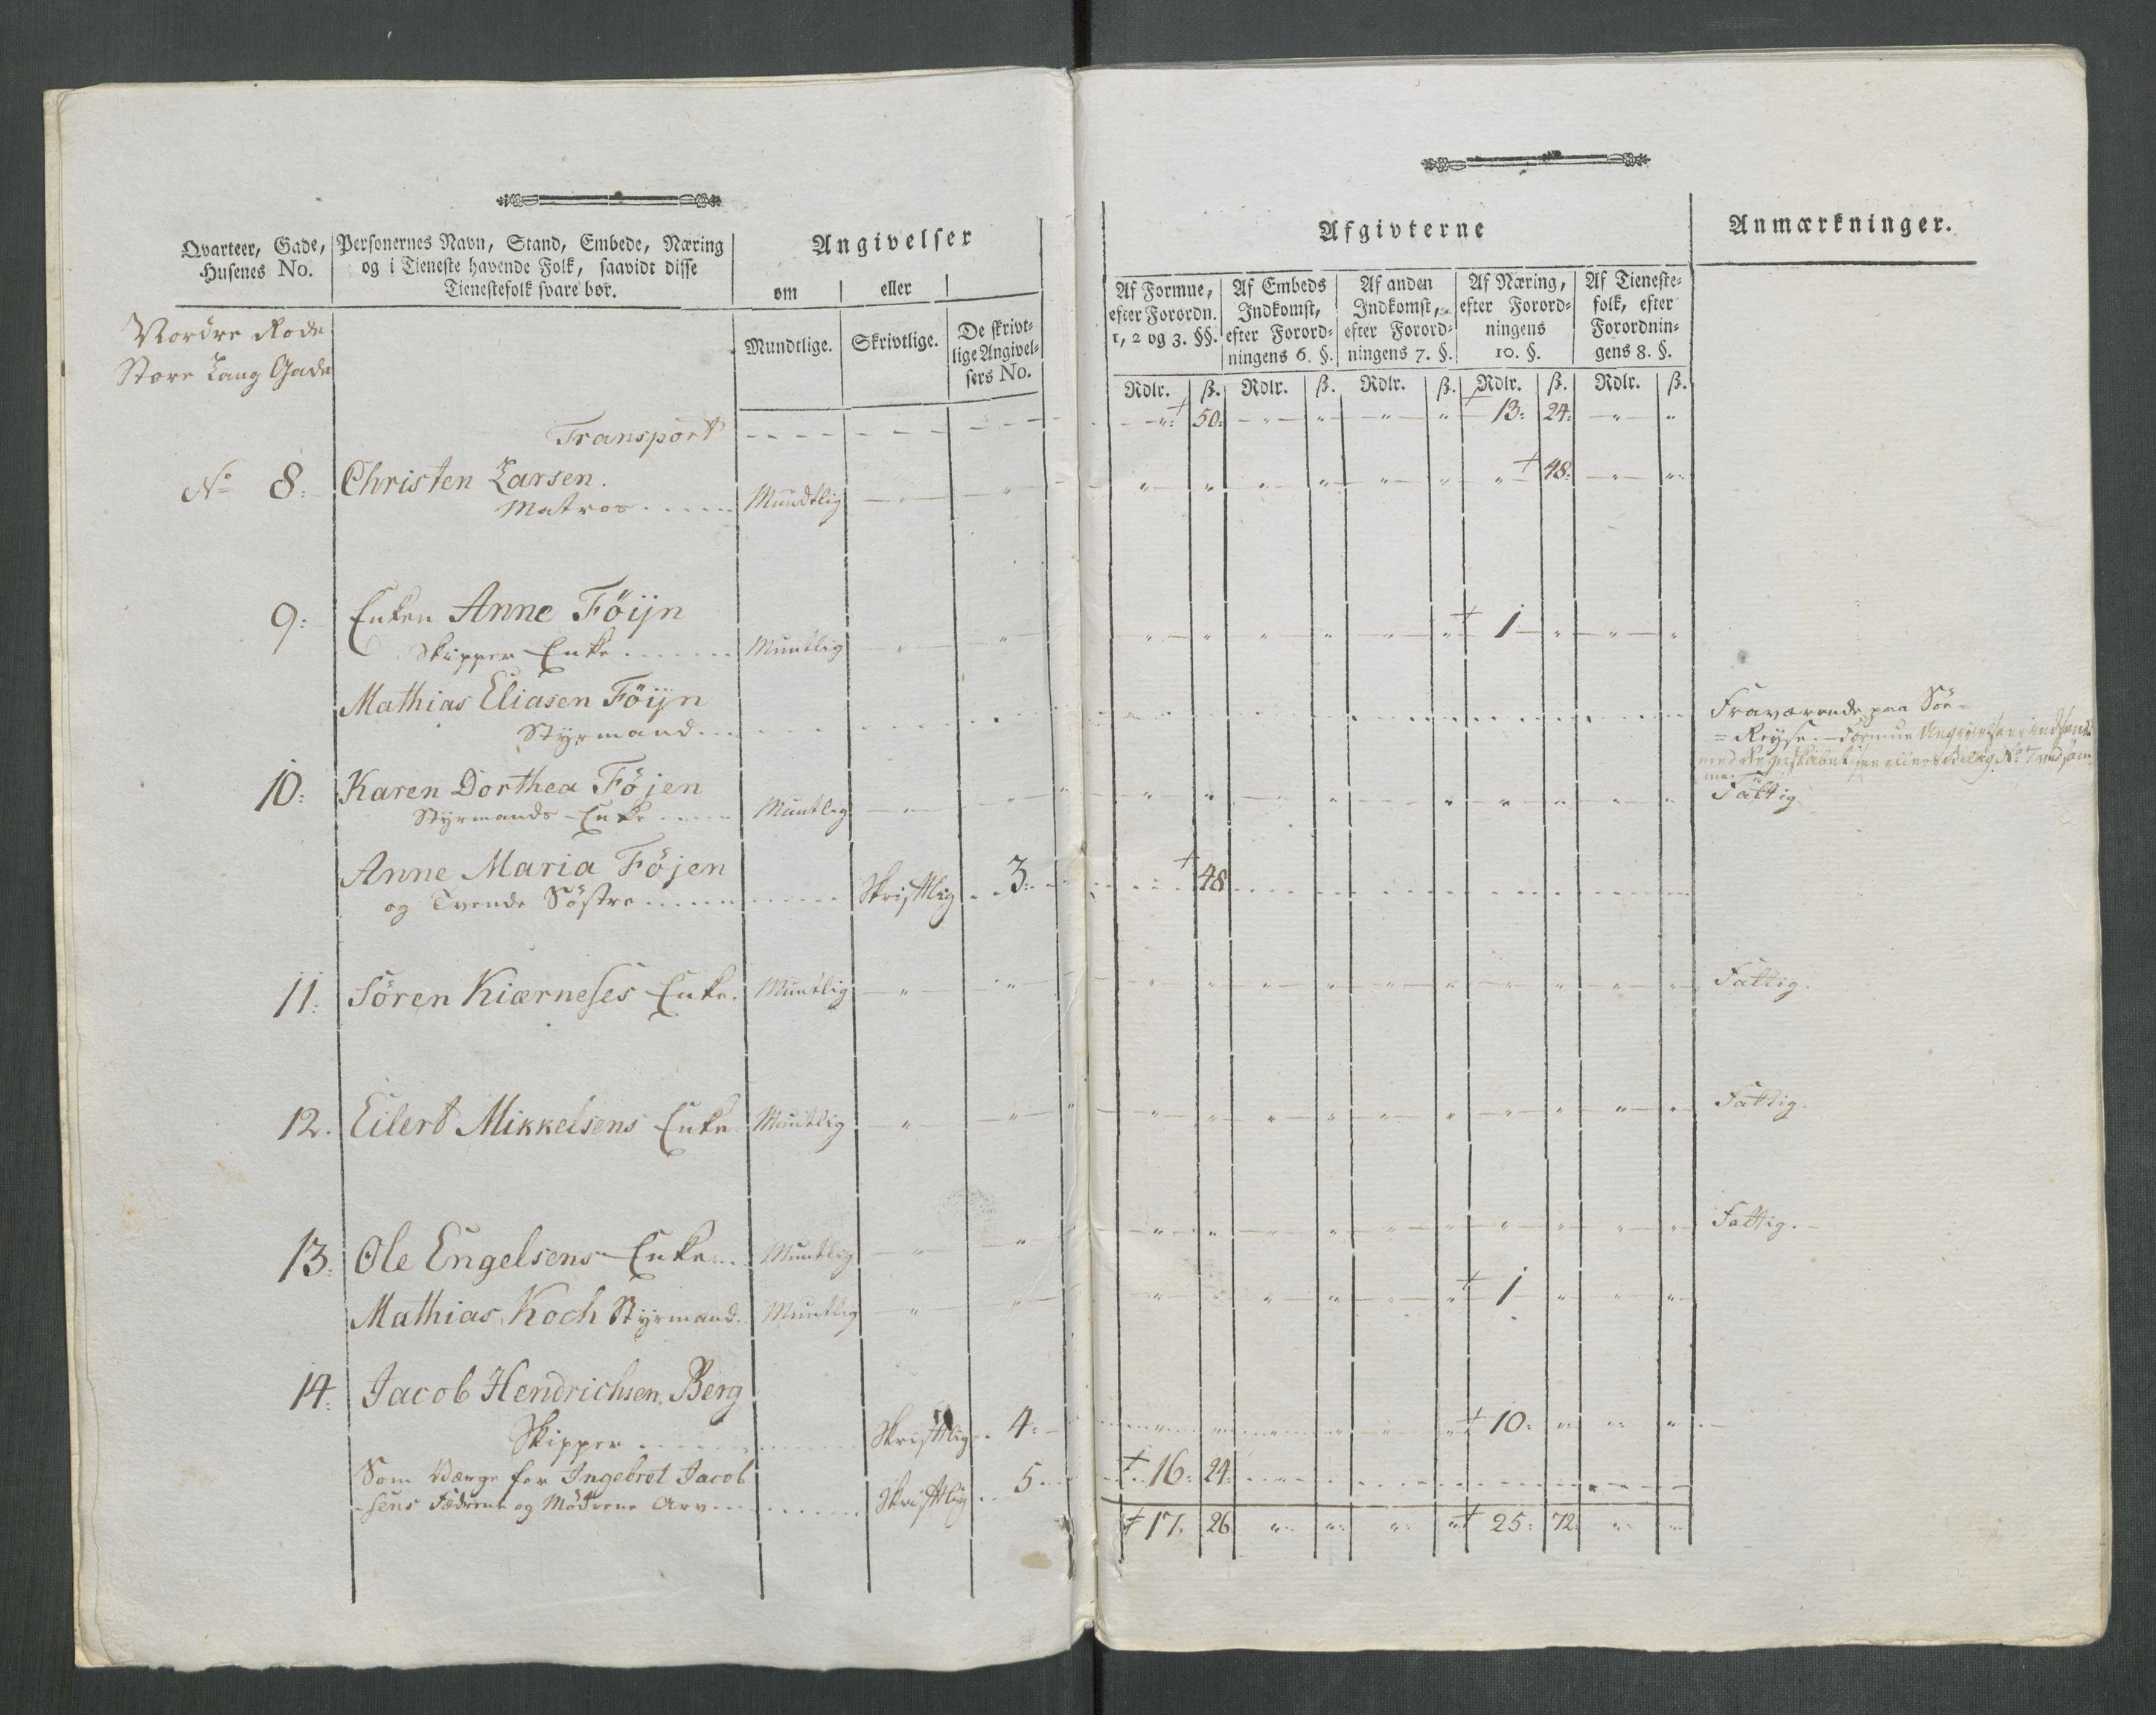 Qvarteer, Gade,
Husenes No.
Personernes Navn, Stand, Embede, Næring
og i Tieneste havende Folk, saavidt disse
Tienestefolk svare bør.
Angivelser
om eller
Mundtlige. Skrivtlige. De skrivt-
lige Angivel-
sers No.
Afgivterne
Anmærkninger.
Af Formue,
efter Forordn.
1, 2 og 3. §§.
Af Embeds
Indkomst,
efter Forord-
ningens 6. §.
Af anden
Indkomst,
efter Forord-
ningens 7. §.
Af Næring,
efter Forord-
ningens
10. §.
Af Tieneste-
folk, efter
Forordnin-
gens 8. §.
Rdlr. ß. Rdlr. ß. Rdlr. ß. Rdlr. ß. Rdlr. ß.
Nordre Rode
Store Lang Gade
Transport - - - - " + 50: " " " " + 13: 24: " "
No 8: Christen Larsen.
Matros - - - Mundtlig " " " " " " " " " + 48: " "
9: Enken Anne Föijn
Skipper Enke - - - Muntlig " " " " " " " " + 1 " " "
Mathias Eliasen Föijn
Styrmand - - -
Fraværende paa Söe-
= Reyse. - Formue Angivelse er indsendt
med Regnskabet No 7
10: Karen Dorthea Föjen
Styrmands Enke - - - Muntlig " " " " " " " " " " " " Fattig
Anne Maria Föjen
og Tvende Söstre - - - Skriftlig - - 3: - - + 48 - - -
11: Sören Kiærneses Enke. Muntlig " " " " " " " " " " " " Fattig.
12. Eilert Mikkelsens Enke Muntlig " " " " " " " " " " " " Fattig.
13: Ole Engelsens Enke - - Muntlig " " " " " " " " " " " " Fattig. -
Mathias Koch Styrmand. Muntlig " " " " " " " " + 1 " " "
14: Jacob Hendrichsen Berg
Skipper - - - Skriftlig - - 4: - " " " " " " + 10: " " "
Som Værge for Ingebret Jacob
-sens Fædrene og Mödrene Arv - - - Skriftlig - - 5 - - + 16: 24: - - -
+ 17: 26 " " " " + 25: 72: " "